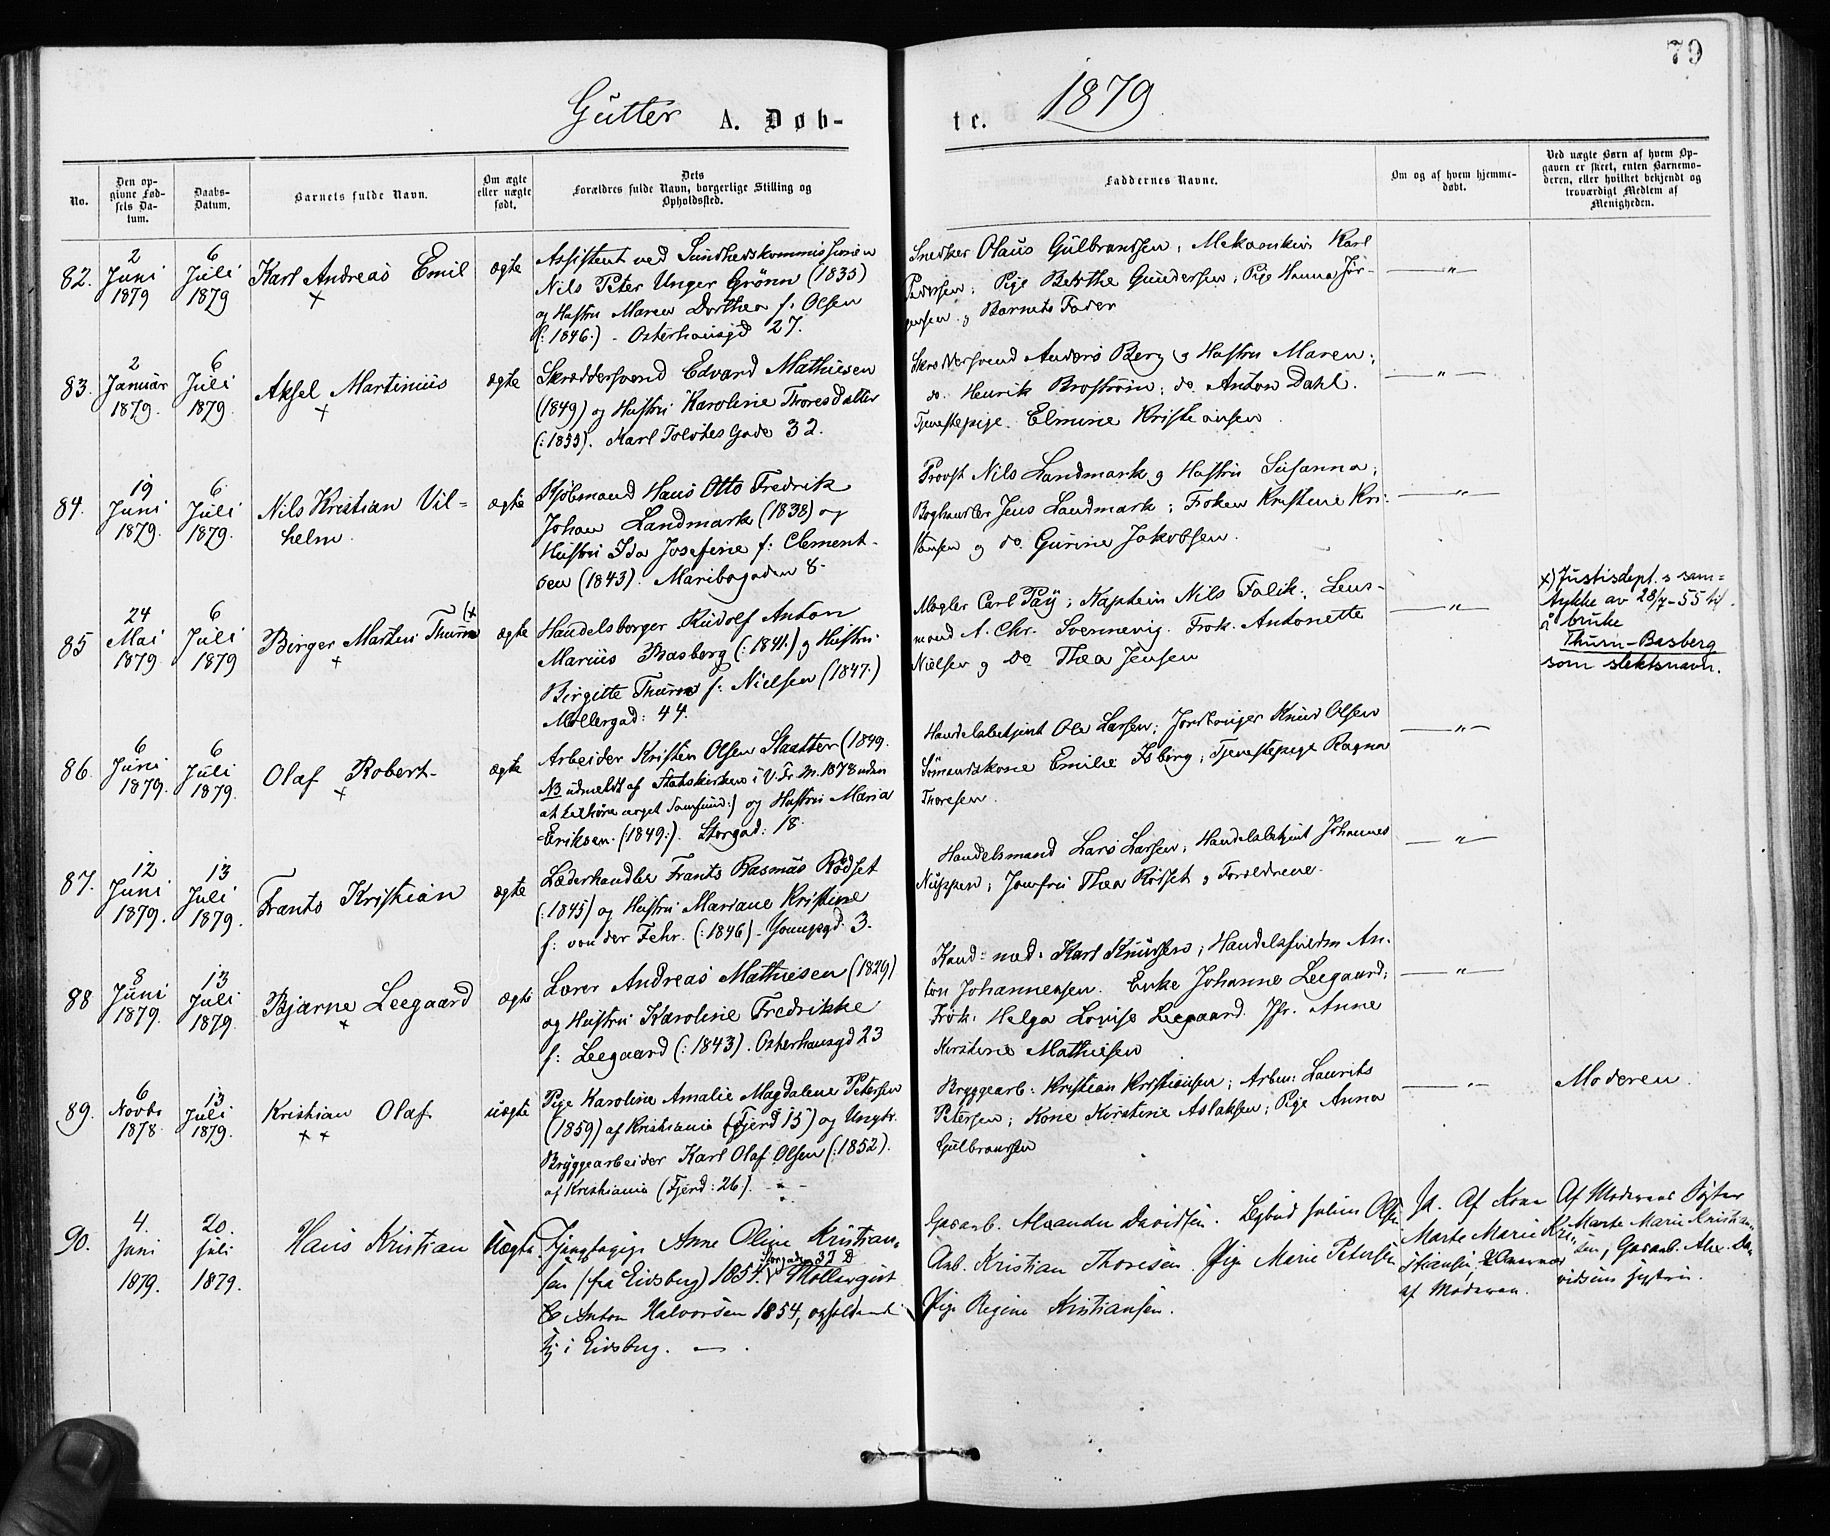 79
Gutter A. Døb-
te. 1879
No.
Den op-
givne Fød-
sels Da-
tum.
Daabs-
Datum.
Barnets fulde Navn.
Om ægte
eller uægte
født.
Dets
Forældres fulde Navn, borgerlige Stilling og
Opholdssted.
Faddernes Navne.
Om og af hvem hjemme-
døbt.
Ved uægte Børn af hvem Op-
gaven er skeet, enten Barnemo-
deren, eller hvilket bekjendt og
troværdigt Medlem af
Menigheden.
82.
2
Juni
1879
6
Juli
1879
Karl Andreas Emil
+
ægte
Assistent ved Sundhedskommissionen
Nils Peter Unger Grönn (1835)
og Hustru Maren Dorthea f: Olsen
(:1846:) - Osterhausgd 27.
Snedker Olaus Gulbrandsen; Mekanikus Karl
Pedersen; Pige Berthe Gundersen; Pige Hanna Jör-
gensen. og Barnets Fader
— " —
83.
2
Januar
1879.
6
Juli
1879.
Aksel Martinius
+
ægte
Skræddersvend Edvard Mathiesen
(1849) og Hustru Karoline Thoresdatter
(:1853). Karl Tolvtes Gade 32.
Skræddersvend Anders Berg og Hustru Maren;
do. Henrik Broström; do. Anton Dahl.
Tjenestepige. Elmine Kristiansen
— " —
84.
19
Juni
1879.
6
Juli
1879.
Nils Kristian Vil-
helm.
ægte
Kjöbmand Hans Otto Fredrik
Johan Landmark (1838) og
Hustru Ida Josefine f: Clement-
sen (1843). Maribogaden 8.
Provst Nils Landmark og Hustru Susanna;
Boghandler Jens Landmark; Fröken Kristine Kri-
stensen og do. Gurine Jakobsen.
— " —
85
24
Mai
1879
6
Juli
1879
Birger Martin Thurn (x
+
ægte
Handelsborger Rudolf Anton
Marius Basberg (:1841:) og Hustru
Birgitte Thurn f: Nielsen (1847.)
Møllergad: 44.
Mægler Carl Pay; Kaptein Nils Falik; Lens-
mand A. Chr. Svennevig. Frök. Antonette
Nielsen og do Thea Jensen
— " —
x) Justisdept.s sam=
tykke av 28/7-55 til
å bruke
Thurn-Basberg
som slektsnavn.
86.
6
Juni
1879.
6
Juli
1879.
Olaf Robert-
+
ægte
Arbeider Kristen Olsen Slaatter (1849.
NB udmeldt af Statskirken i V. Fr. M. 1878 uden
at tilhöre noget Samfund:) og Hustru Maria
Eriksen. (:1849:). Storgad: 18.
Handelsbetjent Ole Larsen; Jordbruger Knud Olsen
Sömandskone Emilie Isberg; Tjenestepige Ragna
Thoresen.
— " —
87.
12
Juni
1879.
13
Juli
1879.
Frants Kristian
ægte
Læderhandler Frants Rasmus Rödset
(:1845) og Hustru Mariane Kristine
f: von der Fehr. (:1846). Youngsgd. 3.
Handelsmand Lars Larsen; Handelsbetjent Johannes
Nuppen; Jomfru Thea Rödset og Forældrene.
— " —
88
8
Juni
1879.
13
Juli
1879.
Bjarne Leegaard
+
ægte
Lærer Andreas Mathiesen (1829)
og Hustru Karoline Fredrikke
f: Leegaard (:1843). Osterhausgd 23
Kand: med. Karl Knudsen; Handelsfuldm An-
ton Johannensen. Enke Johanne Leegaard;
Frök. Helga Lovise Leegaard. Jfr. Anne
Kirstine Mathiesen
— " —
89.
6
Novbr
1878.
13
Juli
1879.
Kristian Olaf.
+ +
uægte
Pige Karoline Amalie Magdalene Petersen
(1859) af Kristiania (Fjerd 15) og Ungkr.
Bryggearbeider Karl Olaf Olsen (:1852).
af Kristiania (Fjerd: 26).
Bryggearb. Kristian Kristiansen; Arbm: Laurits
Petersen; Kone Kirstine Aslaksen; Pige Anna
Gulbranssen
— " —
Moderen.
90.
4.
juni
1879.
20.
juli
1879.
Hans Kristian
Uægte
Tjenestepige Anne Oline Kristian-
sen (fra Eidsberg) 1854. Storgaden 37 D
& Anton Halvorsen 1854, opholdende
sig i Eidsberg. —
Gasarb. Alexander Davidsen. Julius Olsen
Arb. Kristian Thoresen. Pige Marie Petersen
Pige Regine Kristiansen.
Ja. Af Kone
Marte Marie Kri-
stiansen,
af Moderen.
Af Moderens Søster
Marte Marie Kristian-
sen, Gasarb. Alex. Da-
vidsens